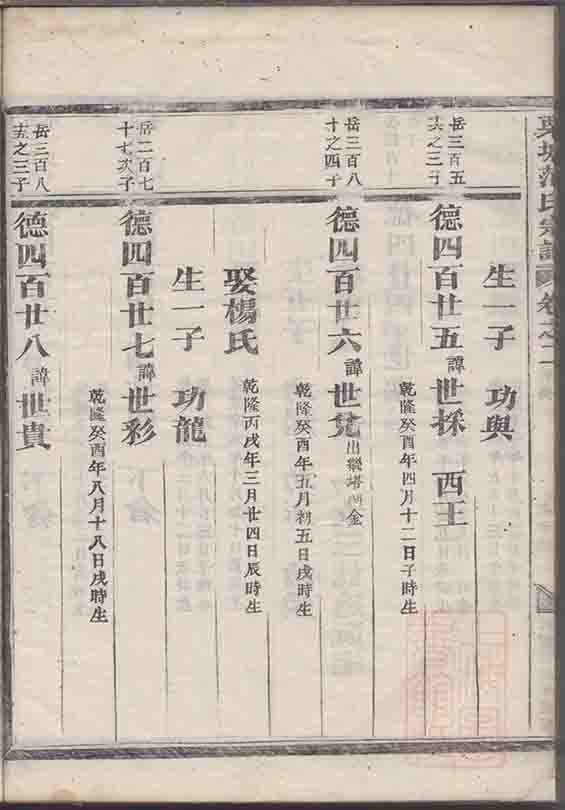 氏宗譜 卷之二
生一子 功與
岳三百五
十六之三子
德四百廿五 諱世採 西王
乾隆癸酉年四月十二日子時生
岳三百八
十之四子
德四百廿六 諱世 出繼塔 金
乾隆癸酉年五月初五日戌時生
娶楊氏 乾隆丙戌年三月廿四日辰時生
生一子 功龍
岳二百七
十七次子
德四百廿七 諱世彩
乾隆癸酉年八月十八日戌時生
岳三百八
十五之三子
德四百廿八 諱世貴